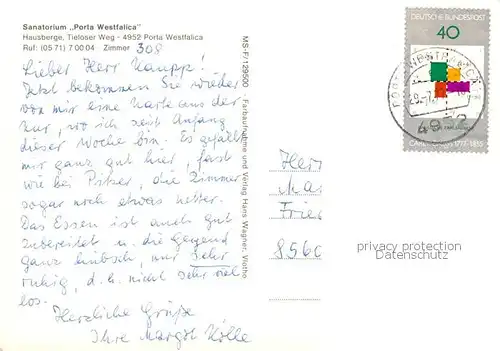 Sanatorium „Porta Westfalica"
Hausberge, Tieloser Weg - 4952 Porta Westfalica
Ruf: (05 71) 7 00 04 Zimmer 308
Lieber Herr Kaupp!
Jetzt bekommen Sie wieder
von mir eine Karte aus der
Kur, wo ich seit Anfang
dieser Woche bin. Es gefällt
mir ganz gut hier, fast
wie bei Pitzer, die Zimmer
sogar noch etwas netter.
Das Essen ist auch gut
zubereitet u. die Gegend
ganz hübsch, nur sehr
ruhig, d.h. nicht sehr viel
los.
Herzliche Grüße
Ihre Margot Kölle
MS-F/129500 Farbaufnahme und Verlag Hans Wagner, Vlotho
DEUTSCHE BUNDESPOST
40
CARL 1777-1855
PORTA WESTFALICA
49 2
Herr
Max
Fries
8560
privacy protection
Datenschutz